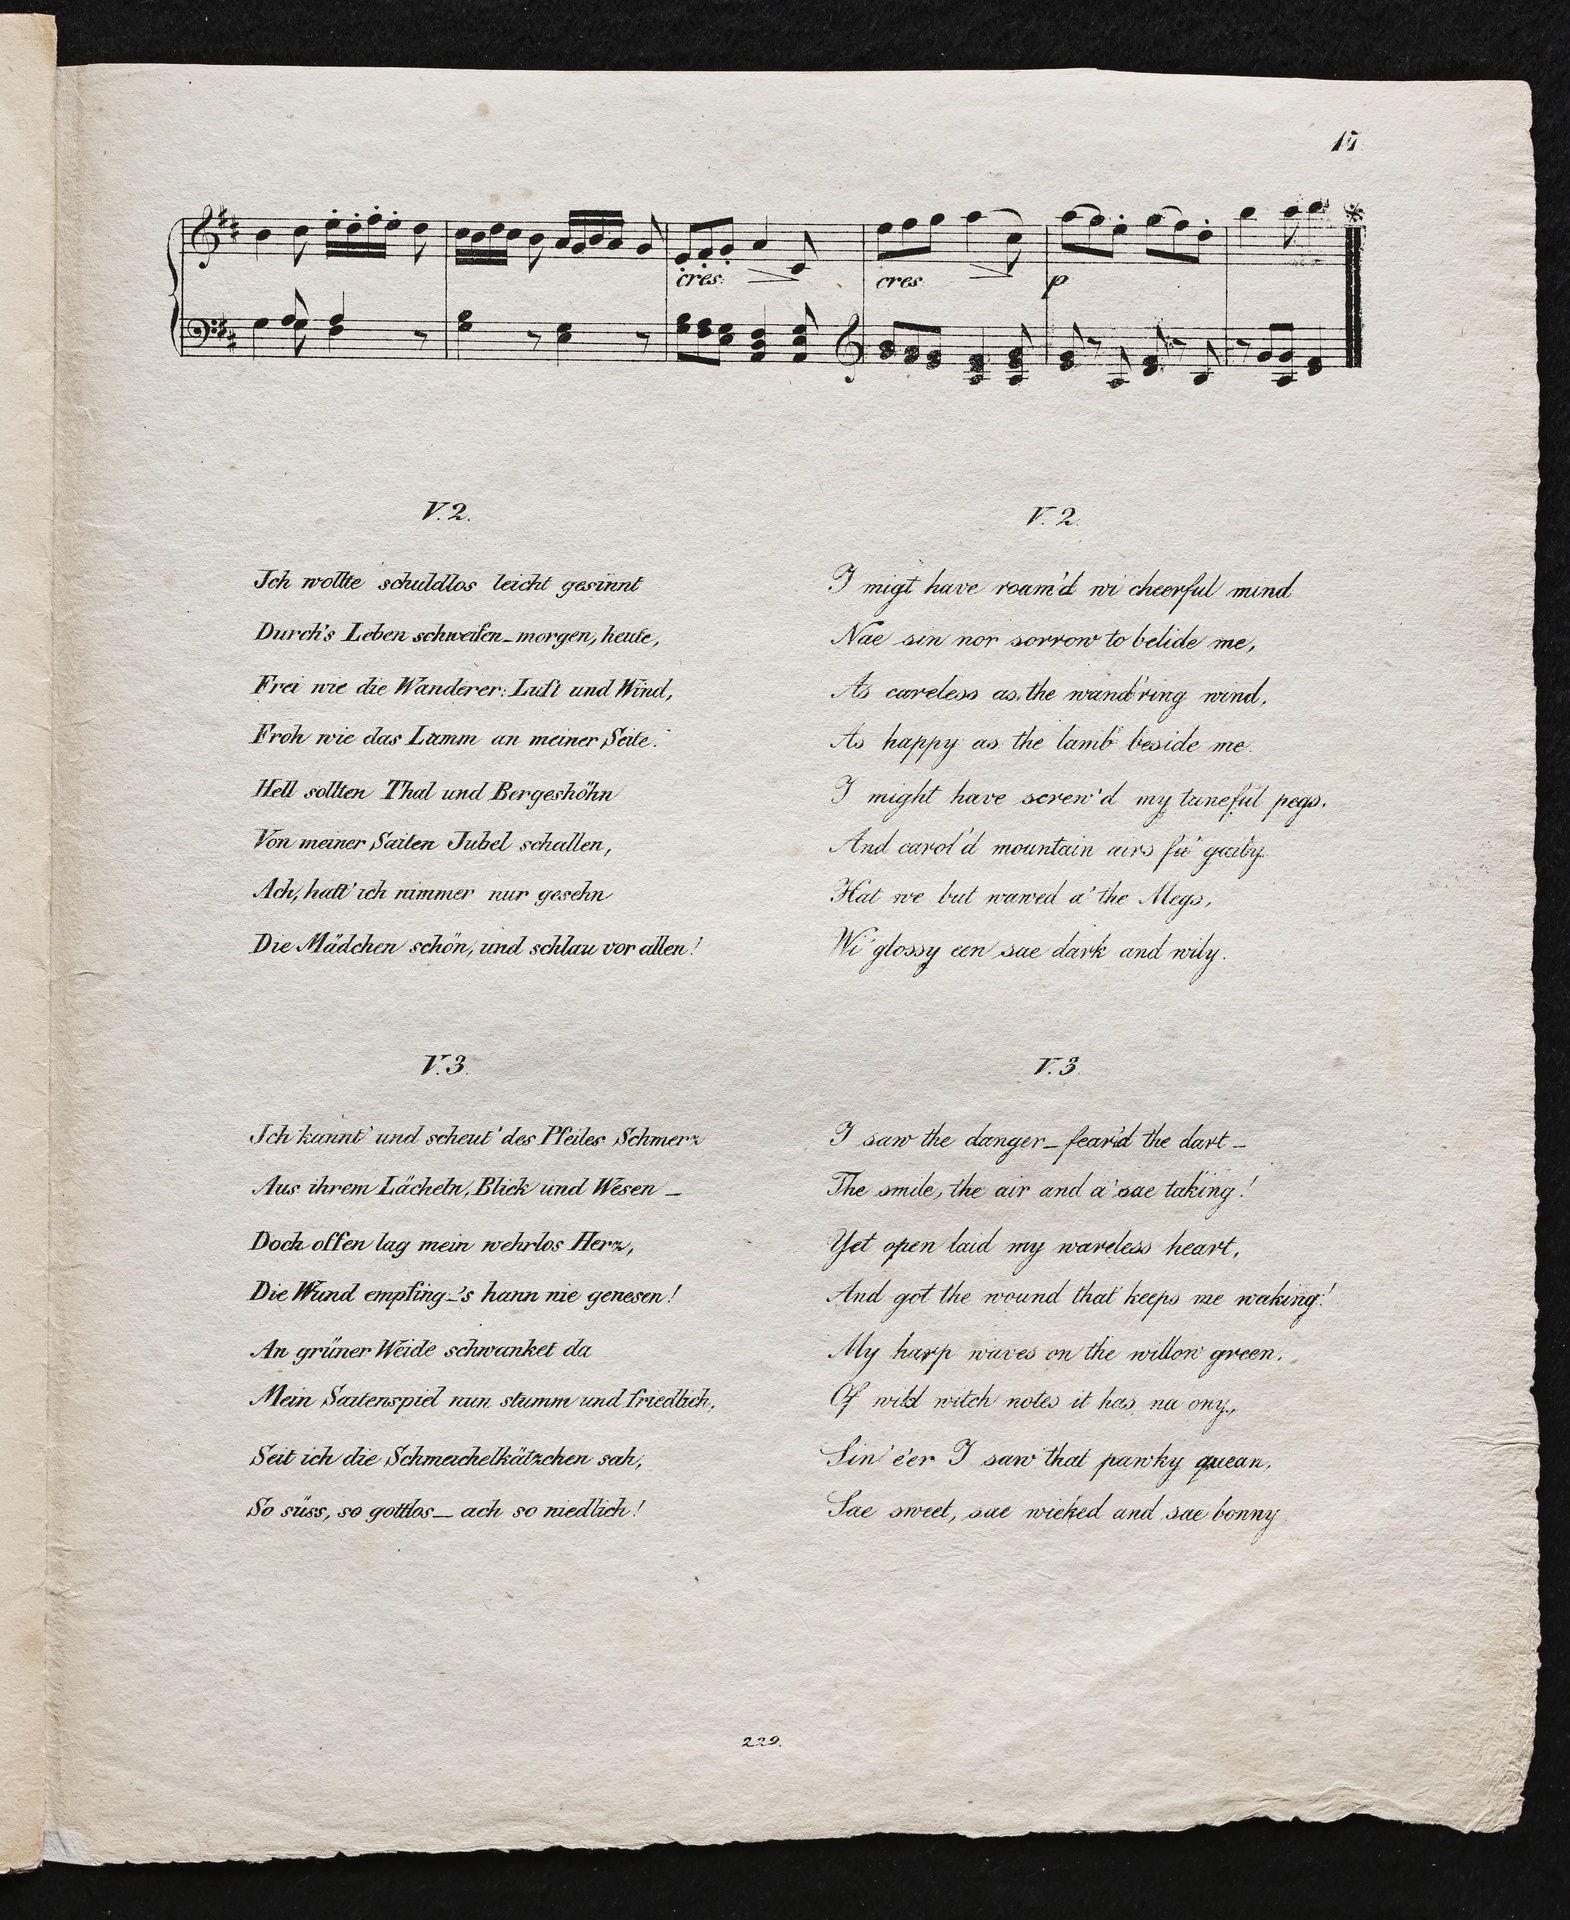 17
cres:
cres
p
V. 2.
Jch wollte schuldlos leicht gesinnt
Durch's Leben schweifen_morgen, heute,
Frei wie die Wanderer: Luft und Wind,
Froh wie das Lamm an meiner Seite.
Hell sollten Thal und Bergeshöhn
Von meiner Saiten Jubel schallen,
Ach, hatt' ich nimmer nur gesehn
Die Mädchen schön, und schlau vor allen!
V. 3.
Jch kannt' und scheut' des Pfeiles Schmerz
Aus ihrem Lächeln, Blick und Wesen _
Doch offen lag mein wehrlos Herz,
Die Wund empfing_'s hann nie genesen!
An grüner Weide schwanket da
Mein Saitenspiel nun stumm und friedlich,
Seit ich die Schmeichelkätzchen sah,
So süss, so gottlos_ ach so niedlich!
V. 2.
I migt have roam'd wi cheerful mind
Nae sin nor sorrow to belide me,
As careless as the wand'ring wind,
As happy as the lamb beside me.
I might have screw'd my tuneful pegs.
And carol'd mountain airs fu' gaily
Hat we but wawed a' the Megs,
Wi' glossy een sae dark and wily.
V. 3.
I saw the danger_fear'd the dart_
The smile, the air and a' sae taking!
Yet open laid my wareless heart,
And got the wound that keeps me waking!
My harp waves on the willow green,
Of wild witch notes it has na ony,
Sin' e'er I saw that pawky quean,
Sae sweet, sae wicked and sae bonny
229.